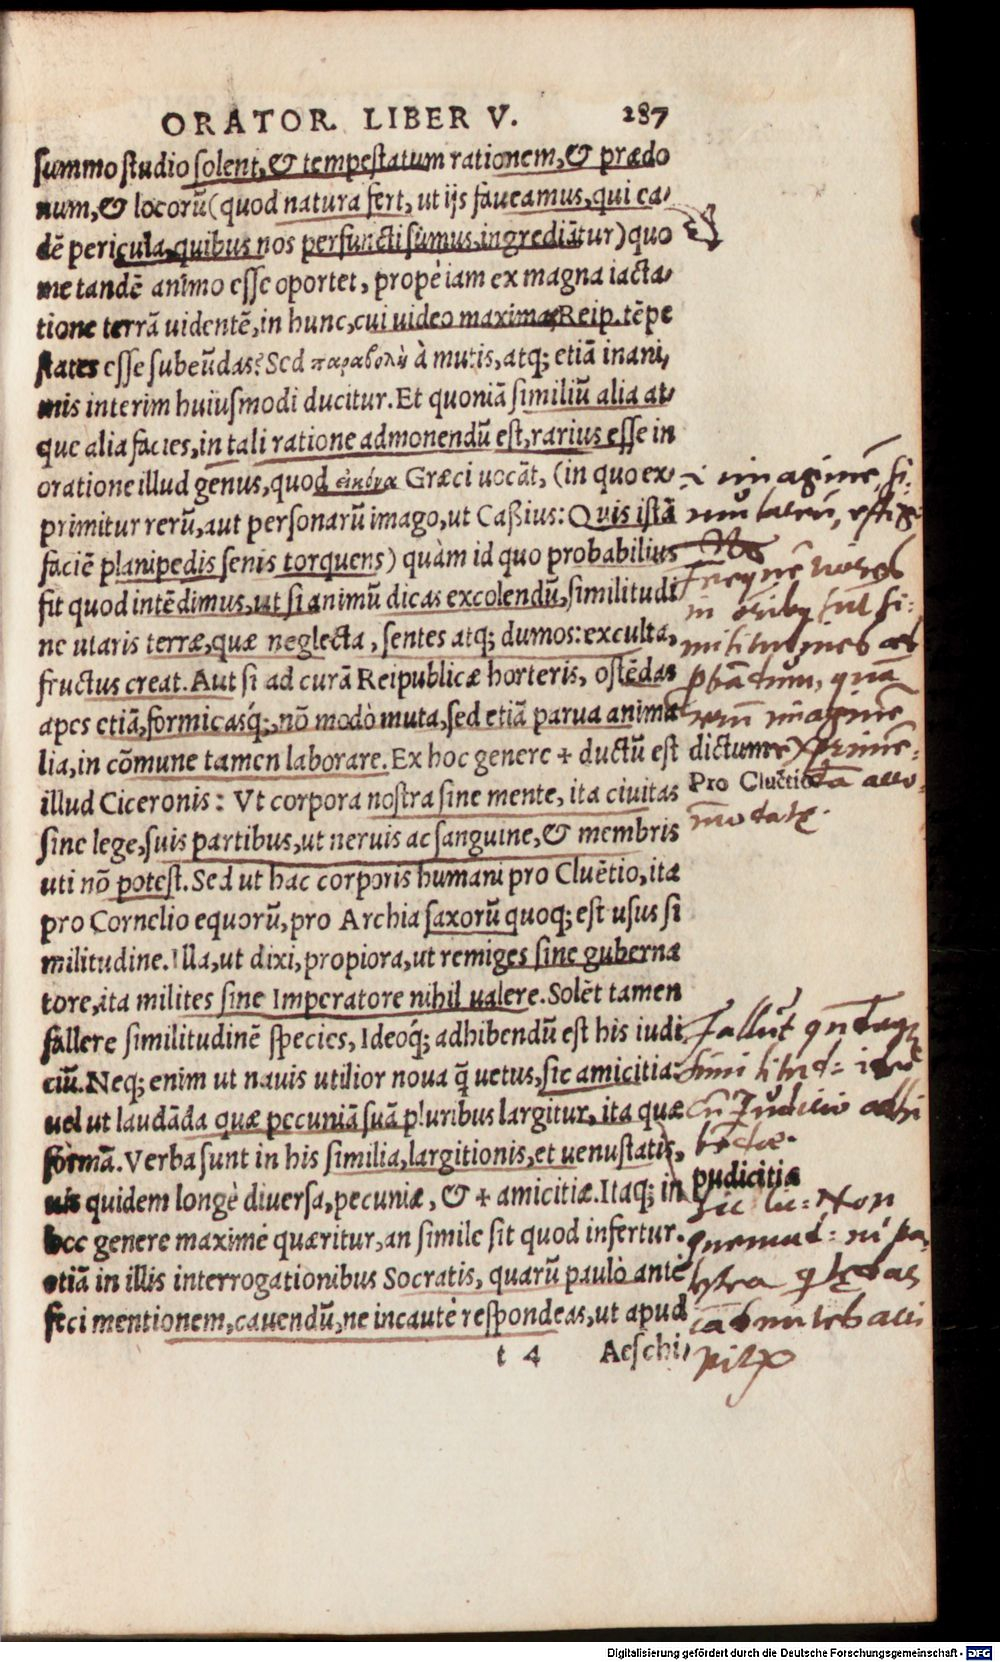 ORATOR. LIBER V. 287
summo studio solent, & tempestatum rationem, & prædo
num, & locorũ (quod natura fert, ut ijs faueamus, qui ea-
dẽ pericula, quibus nos perfuncti sumus, ingrediãtur) quo
me tandẽ animo esse oportet, propè iam ex magna iacta-
tione terrã uidentẽ, in hunc, cui uideo maximas Reip. tẽpe
states esse subeũdas? Sed παραβολὴ à mutis, atq; etiã inani,
mis interim huiusmodi ducitur. Et quoniã similiũ alia at-
que alia facies, in tali ratione admonendũ est, rarius esse in
oratione illud genus, quod εἰκόνα Græci uocãt, (in quo ex-
primitur rerũ, aut personarũ imago, ut Caßius: Quis istã
faciẽ planipedis senis torquens) quàm id quo probabilius
fit quod intẽdimus, ut si animũ dicas excolendũ, similitudi
ne utaris terræ, quæ neglecta, sentes atq; dumos: exculta,
fructus creat. Aut si ad curã Reipublicæ horteris, ostẽdas
apes etiã, formicasq́;, nõ modò muta, sed etiã parua anima
lia, in cõmune tamen laborare. Ex hoc genere + ductũ est
illud Ciceronis: Vt corpora nostra sine mente, ita ciuitas
sine lege, suis partibus, ut neruis ac sanguine, & membris
uti nõ potest. Sed ut hac corporis humani pro Cluẽtio, ita
pro Cornelio equorũ, pro Archia saxorũ quoq; est usus si
militudine. Illa, ut dixi, propiora, ut remiges sine guberna
tore, ita milites sine Imperatore nihil ualere. Solẽt tamen
fallere similitudinẽ species, Ideoq́; adhibendũ est his iudi
ciũ. Neq; enim ut nauis utilior noua q̃ uetus, sic amicitia:
uel ut laudãda quæ pecuniã suã pluribus largitur, ita quæ
formã. Verba sunt in his similia, largitionis, et uenustatis,
uis quidem longè diuersa, pecuniæ, & + amicitiæ. Itaq; in
hoc genere maximè quæritur, an simile sit quod infertur.
etiã in illis interrogationibus Socratis, quarũ paulò antè
feci mentionem, cauendũ, ne incautè respondeas, ut apud
t 4 Aeschi,
imaginẽ, si-
in
dictum
Pro Cluẽtio
Fallũt
pudicitia